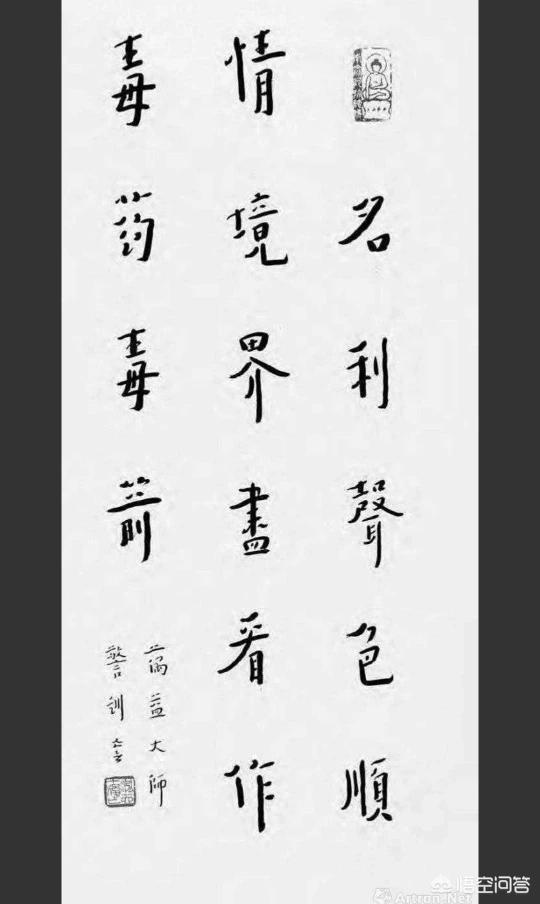 名利聲色順
情境界盡看作
毒葯毒箭
蕅益大師
警訓
悟空问答
Artron.Net